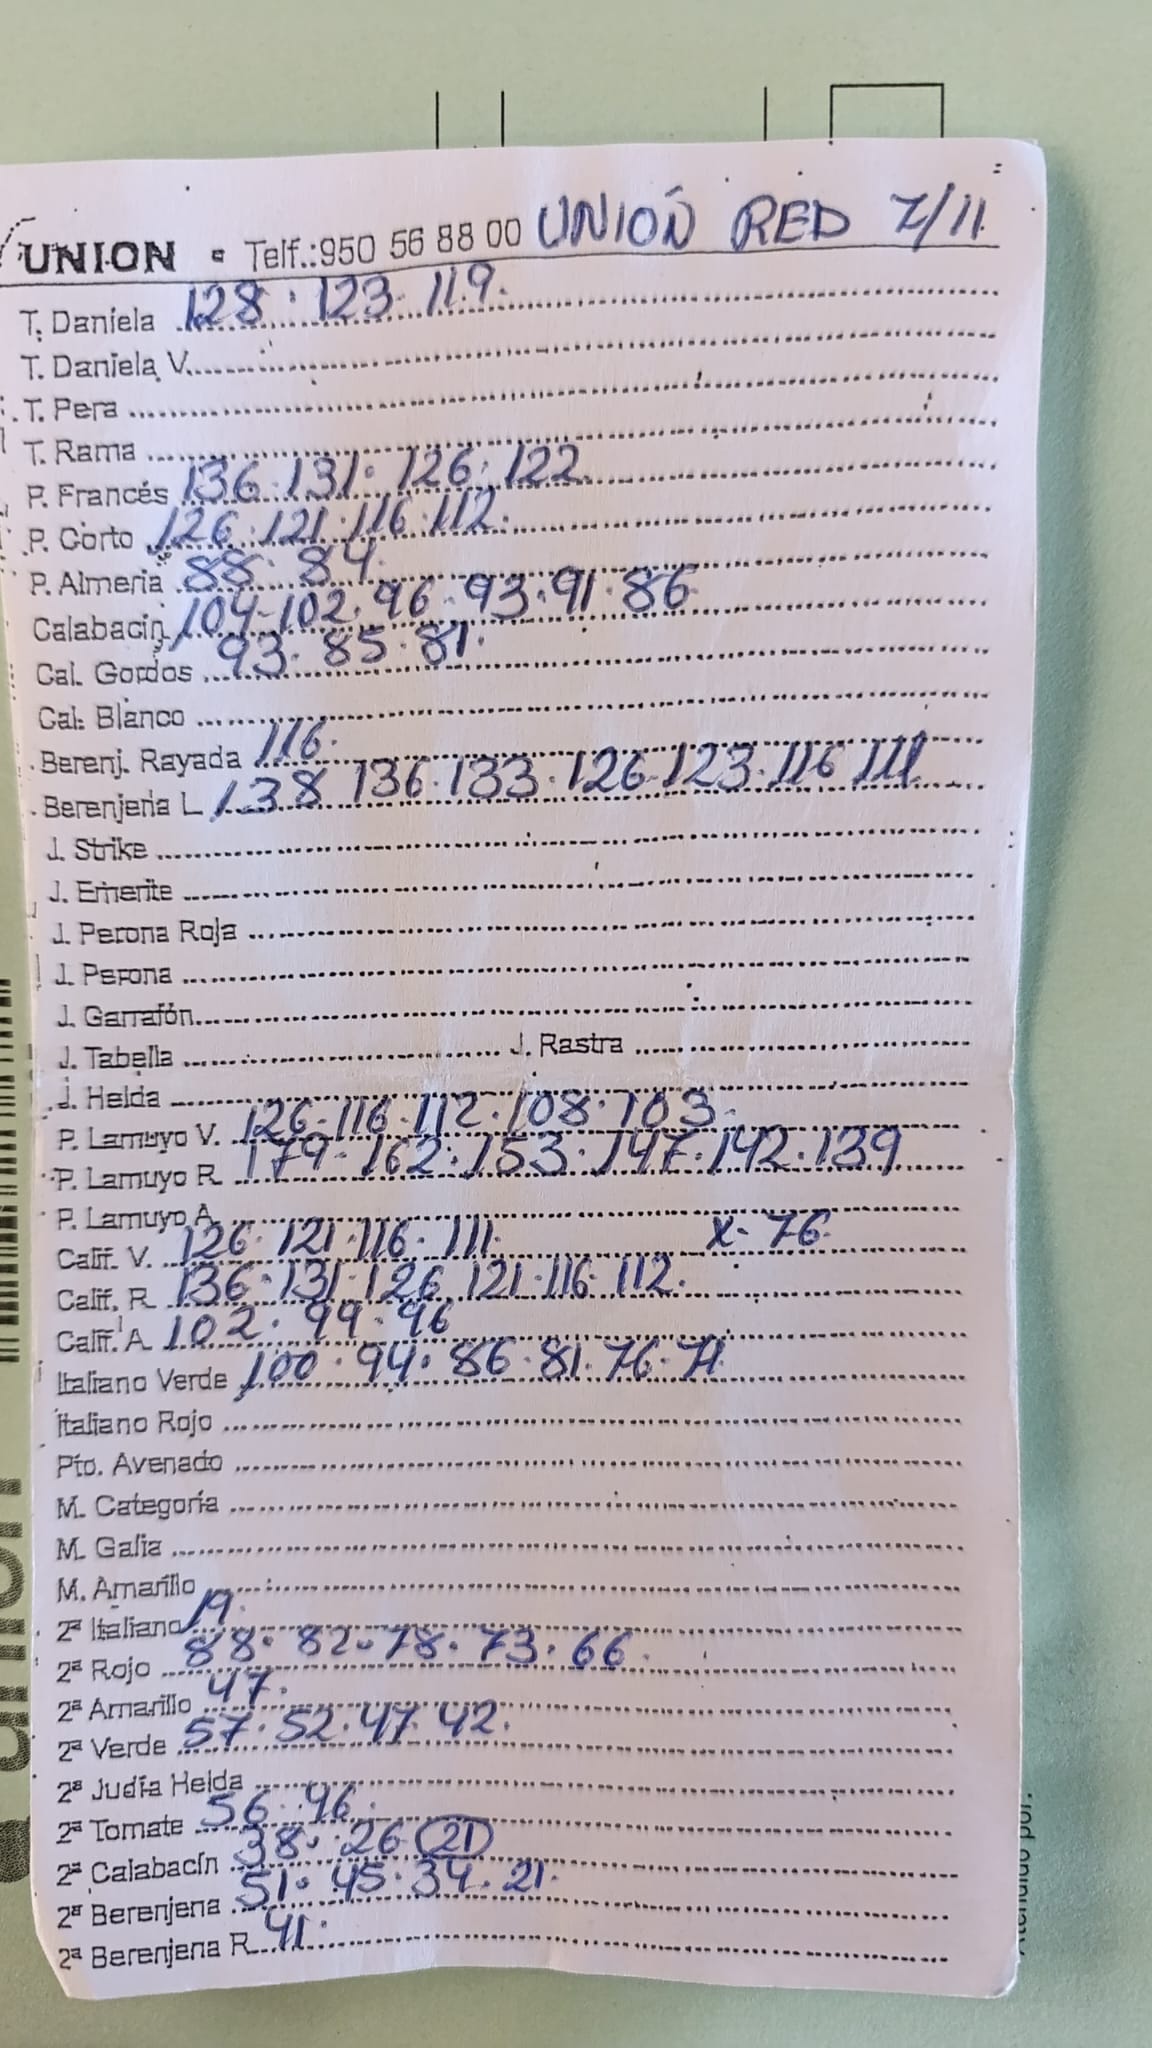 UNION • Telf.:950 56 88 00 UNIÓN RED 7/11
T. Daniela 128 · 123 · 119.
T. Daniela V.
T. Pera
T. Rama
P. Francés 136 · 131 · 126 · 122
P. Corto 126 · 121 · 116 · 112.
P. Almeria 88 · 84.
Calabacin 104 - 102 · 96 · 93 · 91 · 86
Cal. Gordos 93 · 85 · 81.
Cal. Blanco
Berenj. Rayada 116.
Berenjena L 138 136 · 133 · 126 · 123 · 116 111
J. Strike
J. Emerite
J. Perona Roja
J. Perona
J. Garrafón
J. Tabella J. Rastra
J. Helda
P. Lamuyo V. 126 · 116 · 112 · 108 · 103.
P. Lamuyo R. 179 - 162 · 153 · 147 · 142 · 139
P. Lamuyo A.
Calif. V. 126 · 121 · 116 · 111. X - 76.
Calif. R. 136 · 131 · 126 121 · 116 · 112.
Calif. A. 102 · 99 · 96
Italiano Verde 100 · 94 · 86 · 81 · 76 · 71.
Italiano Rojo
Pto. Avenado
M. Categoría
M. Galia
M. Amarillo
2ª Italiano 19.
2ª Rojo 88 · 82 · 78 · 73 · 66.
2ª Amarillo 47.
2ª Verde 57 · 52 · 47 · 42.
2ª Judía Helda
2ª Tomate 56 · 46.
2ª Calabacín 38 · 26 (21)
2ª Berenjena 51 · 45 · 34 · 21.
2ª Berenjena R. 41.
Atendido por: